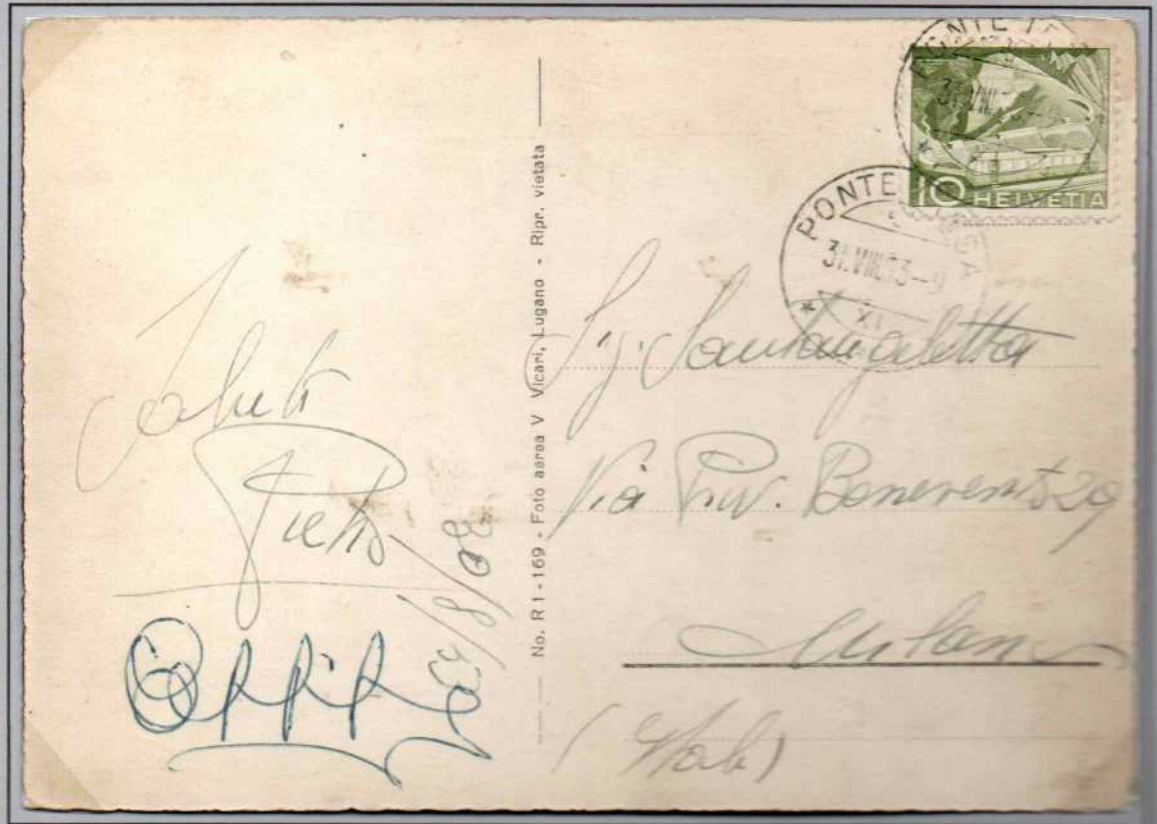 Saluti
Pietro
30/8/53
No. R 1 - 169 - Foto aerea V Vicari, Lugano - Ripr. vietata
10 HELVETIA
PONTE
31.VIII.53-9
XI
Sig. Santangeletta
Via Priv. Benevento 29
Milano
(Italia)